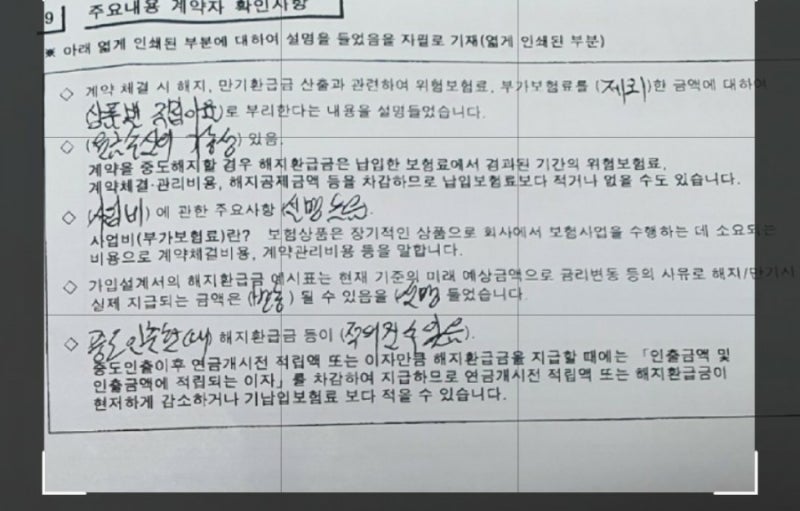 9 주요내용 계약자 확인사항
※ 아래 엷게 인쇄된 부분에 대하여 설명을 들었음을 자필로 기재(엷게 인쇄된 부분)
◇ 계약 체결 시 해지, 만기환급금 산출과 관련하여 위험보험료, 부가보험료를 (제외)한 금액에 대하여
(상품별 적립이율)로 부리한다는 내용을 설명들었습니다.
◇ (원금손실의 가능성) 있음.
계약을 중도해지할 경우 해지환급금은 납입한 보험료에서 경과된 기간의 위험보험료,
계약체결·관리비용, 해지공제금액 등을 차감하므로 납입보험료보다 적거나 없을 수도 있습니다.
◇ (사업비) 에 관한 주요사항 (설명 들음).
사업비(부가보험료)란? 보험상품은 장기적인 상품으로 회사에서 보험사업을 수행하는 데 소요되는
비용으로 계약체결비용, 계약관리비용 등을 말합니다.
◇ 가입설계서의 해지환급금 예시표는 현재 기준의 미래 예상금액으로 금리변동 등의 사유로 해지/만기시
실제 지급되는 금액은 (변동) 될 수 있음을 설명 들었습니다.
◇ 중도인출한(때) 해지환급금 등이 (적어질 수 있음).
중도인출이후 연금개시전 적립액 또는 이자만큼 해지환급금을 지급할 때에는 「인출금액 및
인출금액에 적립되는 이자」를 차감하여 지급하므로 연금개시전 적립액 또는 해지환급금이
현저하게 감소하거나 기납입보험료 보다 적을 수 있습니다.